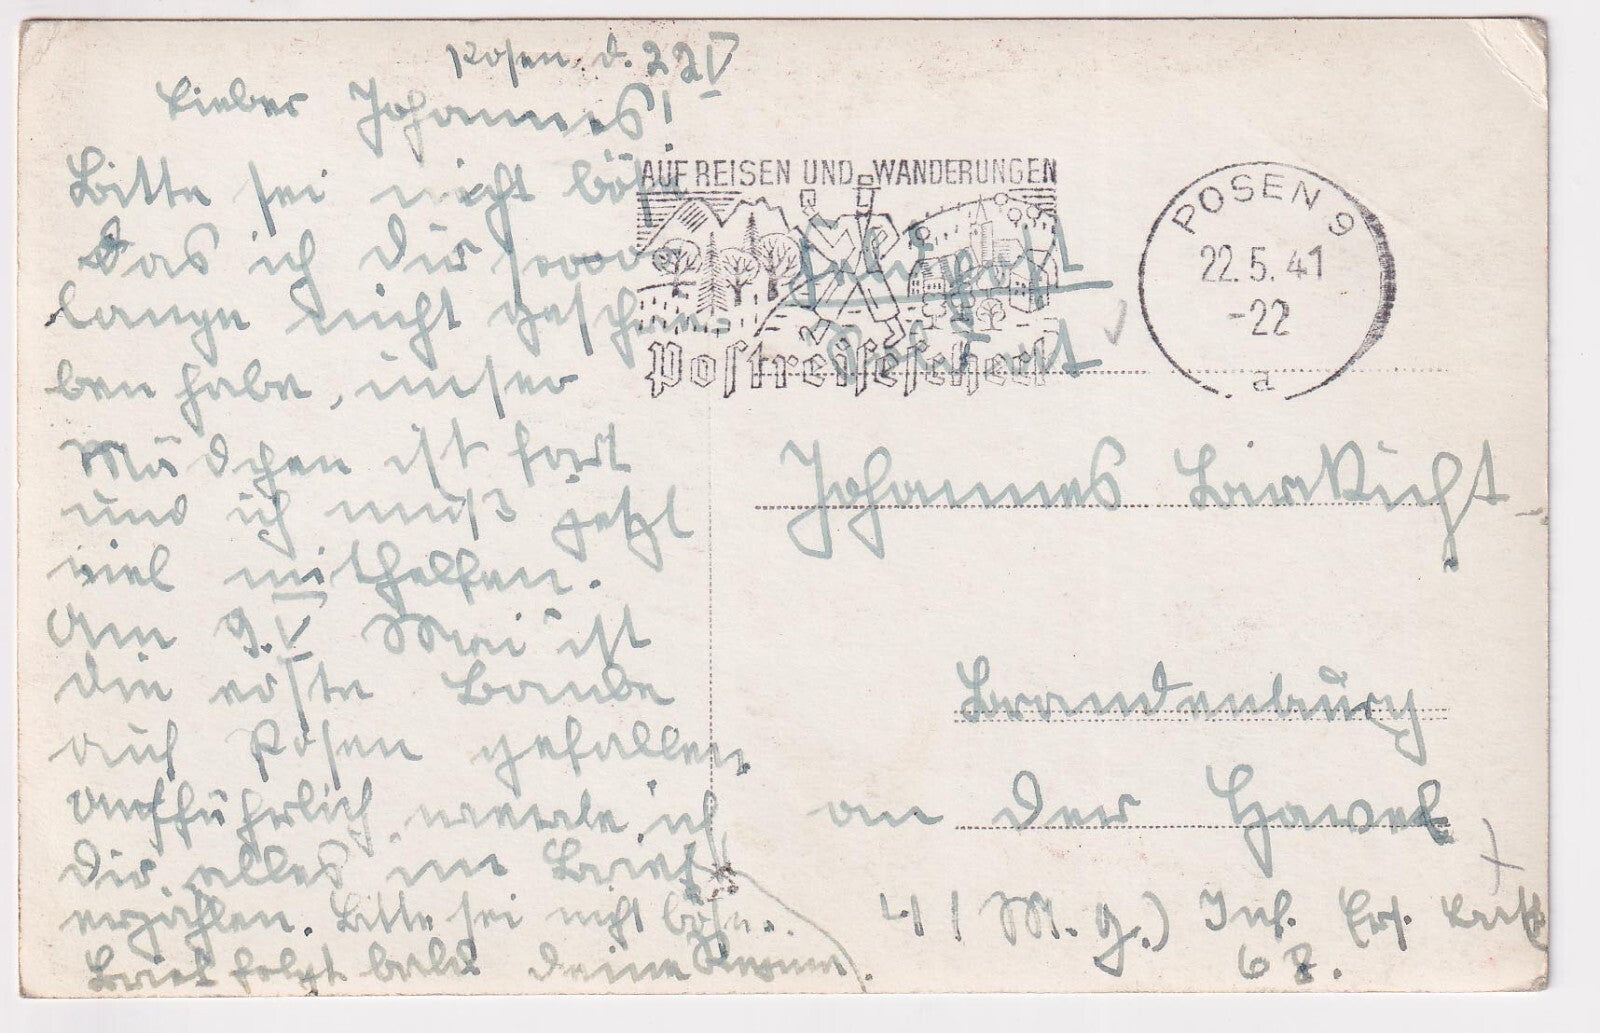 Posen. d. 22 V
Lieber Johannes!
Bitte sei nicht böse
das ich dir soooo
lange nicht geschrie
ben habe, unser
Mädchen ist fort
und ich muß jetzt
viel mithelfen.
Am 9. V Mai ist
die erste Bombe
auf Posen gefallen
ausführlich werde ich
dir alles im Brief
erzählen. Bitte sei nicht böse.
Brief folgt bald deine
AUF REISEN UND WANDERUNGEN
Postreisescheck
POSEN 9
22.5.41
-22
a
Feldpost
Johannes Birkicht
Brandenburg
an der Havel
4 (M. G.) Inf. Ers. Batl.
68.